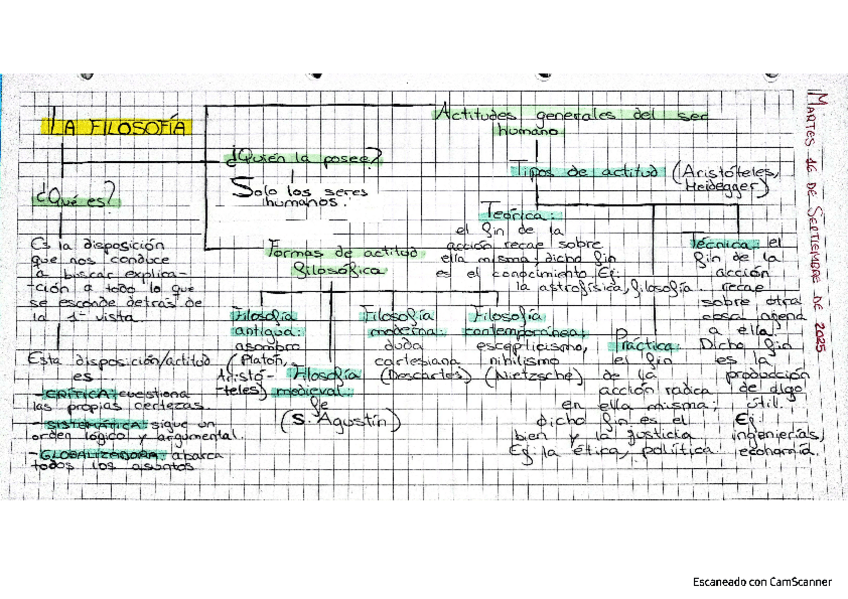 LA FILOSOFÍA
¿Qué es?
Es la disposición
que nos conduce
a buscar explica-
-ción a todo lo que
se esconde detrás de
la 1ª vista.
Esta disposición/actitud
es
-CRÍTICA: cuestiona
las propias certezas.
-SISTEMÁTICA: sigue un
orden lógico y argumental.
-GLOBALIZADORA: abarca
todos los asuntos
¿Quién la posee?
Solo los seres
humanos.
Formas de actitud
filosófica
Filosofía
antigua:
asombro
(Platón,
Aristó-
-teles)
Filosofía
medieval:
fe
(S. Agustín)
Filosofía
moderna:
duda
cartesiana
(Descartes)
Filosofía
contemporánea:
escepticismo,
nihilismo
(Nietzsche)
Actitudes generales del ser
humano
Tipos de actitud (Aristóteles,
Heidegger)
Teórica:
el fin de la
acción recae sobre
ella misma; dicho fin
es el conocimiento Ej:
la astrofísica, filosofía.
Práctica:
el fin
de la
acción radica
en ella misma;
dicho fin es el
bien y la justicia
Ej: la ética, política.
Técnica: el
fin de la
acción
recae
sobre otra
cosa ajena
a ella.
Dicho fin
es la
producción
de algo
útil.
Ej:
ingenierías,
economía.
MARTES 16 DE SEPTIEMBRE DE 2025
Escaneado con CamScanner